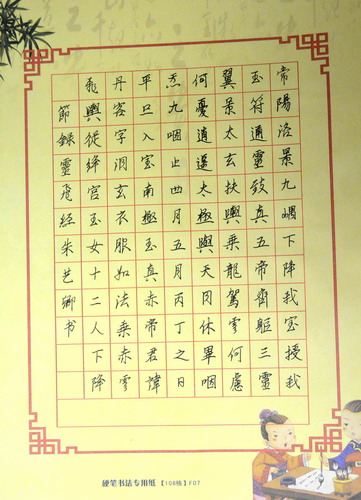 常陽洛景九嵎下降我室授我
玉符通靈致真五帝齊軀三靈
翼景太玄扶輿乘龍駕雲何慮
何憂逍遥太極與天同休畢咽
炁九咽止四月五月丙丁之日
平旦入室南極玉真赤帝君諱
丹容字洞玄衣服如法乘赤雲
飛輿從絳宮玉女十二人下降
節錄靈飛經朱艺卿书
硬笔书法专用纸【108格】F07